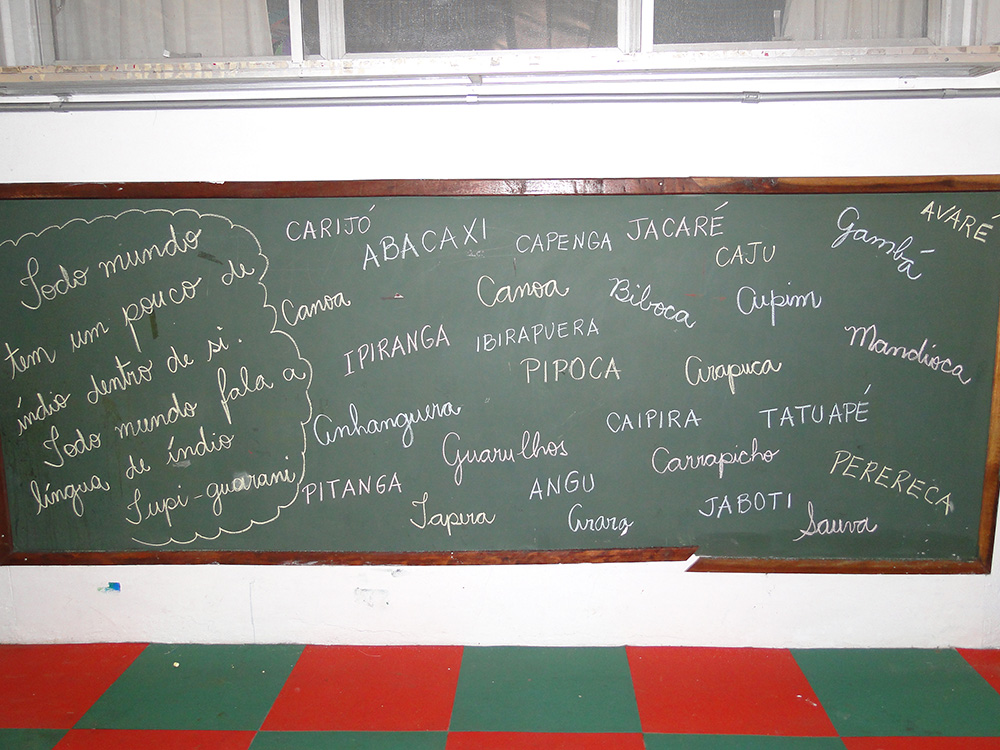 Todo mundo
tem um pouco de
índio dentro de si.
Todo mundo fala a
língua de índio
Tupi-guarani
CARIJÓ
ABACAXI
CAPENGA
JACARÉ
CAJU
Gambá
AVARÉ
Canoa
Canoa
Biboca
Cupim
Mandioca
IPIRANGA
IBIRAPUERA
PIPOCA
Arapuca
Anhanguera
Guarulhos
CAIPIRA
TATUAPÉ
Carrapicho
PERERECA
PITANGA
Tapera
ANGU
Arara
JABOTI
Sauva